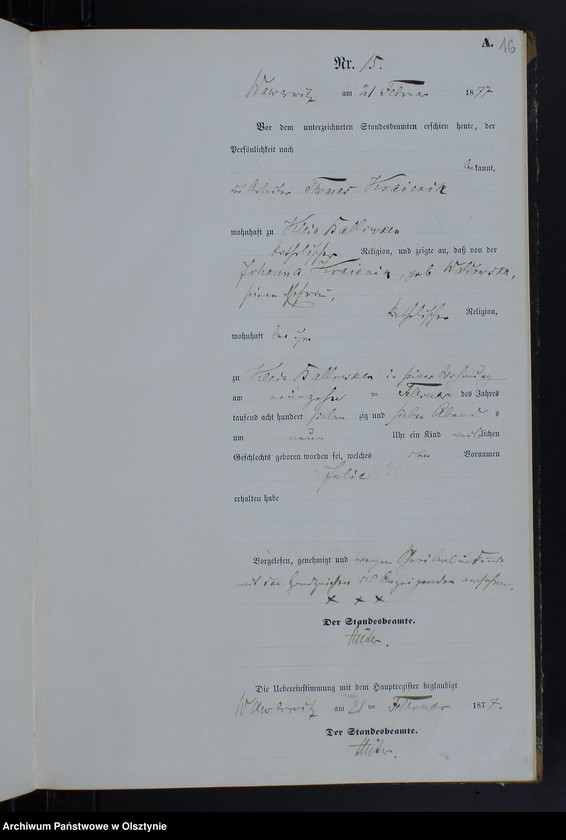 A. 16
Nr. 15.
am 21 Februar 1877
Vor dem unterzeichneten Standesbeamten erschien heute, der
Persönlichkeit nach
bekannt,
Thomas
wohnhaft zu Klein
katholischer Religion, und zeigte an, daß von der
Johanna geb
seiner Ehefrau,
katholischer Religion,
wohnhaft bei ihm
zu Klein in seiner Wohnung
am neunzehn ten Februar des Jahres
tausend acht hundert sieben zig und sieben Abends
um neun Uhr ein Kind weiblichen
Geschlechts geboren worden sei, welches den Vornamen
Julie
erhalten habe
Vorgelesen, genehmigt und wegen
mit den Handzeichen des Anzeigenden versehen.
× × ×
Der Standesbeamte.
Die Uebereinstimmung mit dem Hauptregister beglaubigt
am 21 ten Februar 1877.
Der Standesbeamte.
Archiwum Państwowe w Olsztynie